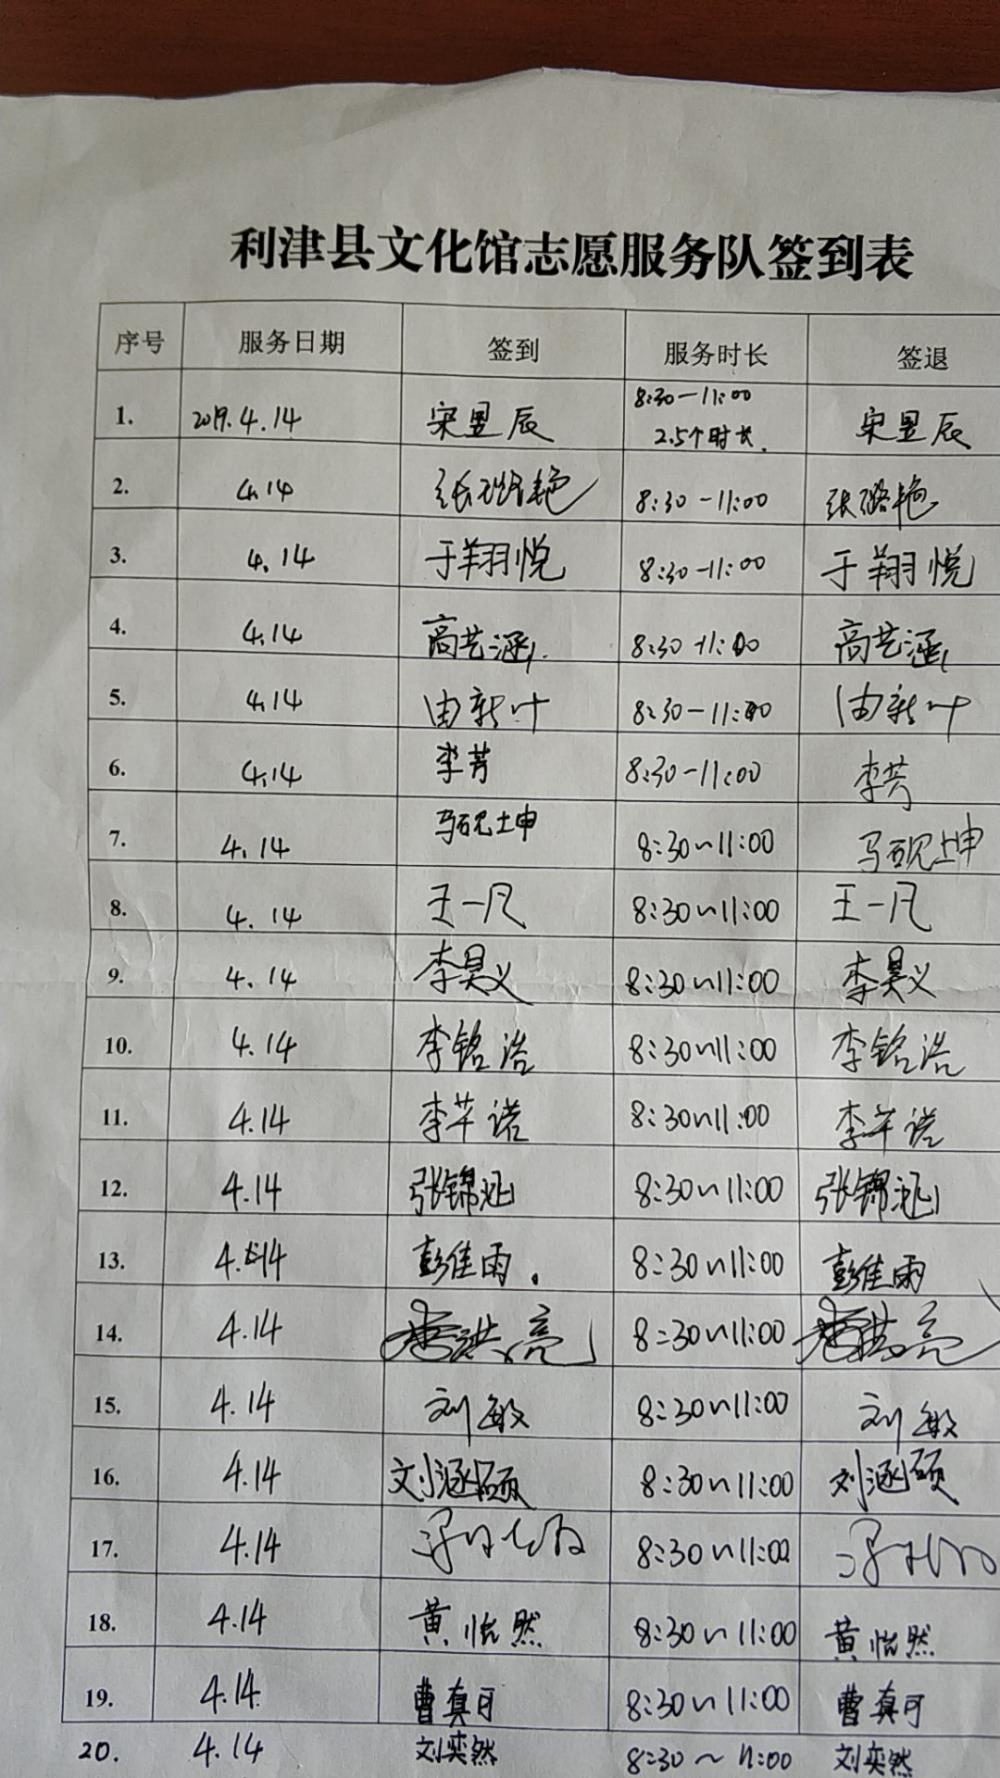 利津县文化馆志愿服务队签到表
序号 服务日期 签到 服务时长 签退
1. 2019.4.14 宋昱辰 8:30-11:00 2.5个时长. 宋昱辰
2. 4.14 张璐艳 8:30-11:00 张璐艳
3. 4.14 于翔悦 8:30-11:00 于翔悦
4. 4.14 高艺涵 8:30-11:00 高艺涵
5. 4.14 由新叶 8:30-11:00 由新叶
6. 4.14 李芳 8:30-11:00 李芳
7. 4.14 马砚坤 8:30~11:00 马砚坤
8. 4.14 王一凡 8:30~11:00 王一凡
9. 4.14 李昊义 8:30~11:00 李昊义
10. 4.14 李铭浩 8:30~11:00 李铭浩
11. 4.14 李芊诺 8:30~11:00 李芊诺
12. 4.14 张锦涎 8:30~11:00 张锦涎
13. 4.14 彭佳雨. 8:30~11:00 彭佳雨
14. 4.14 洪亮 8:30~11:00 洪亮
15. 4.14 刘敏 8:30~11:00 刘敏
16. 4.14 刘涵硕 8:30~11:00 刘涵硕
17. 4.14 8:30~11:00
18. 4.14 黄怡然 8:30~11:00 黄怡然
19. 4.14. 曹真可 8:30~11:00 曹真可
20. 4.14 刘奕然 8:30~11:00 刘奕然